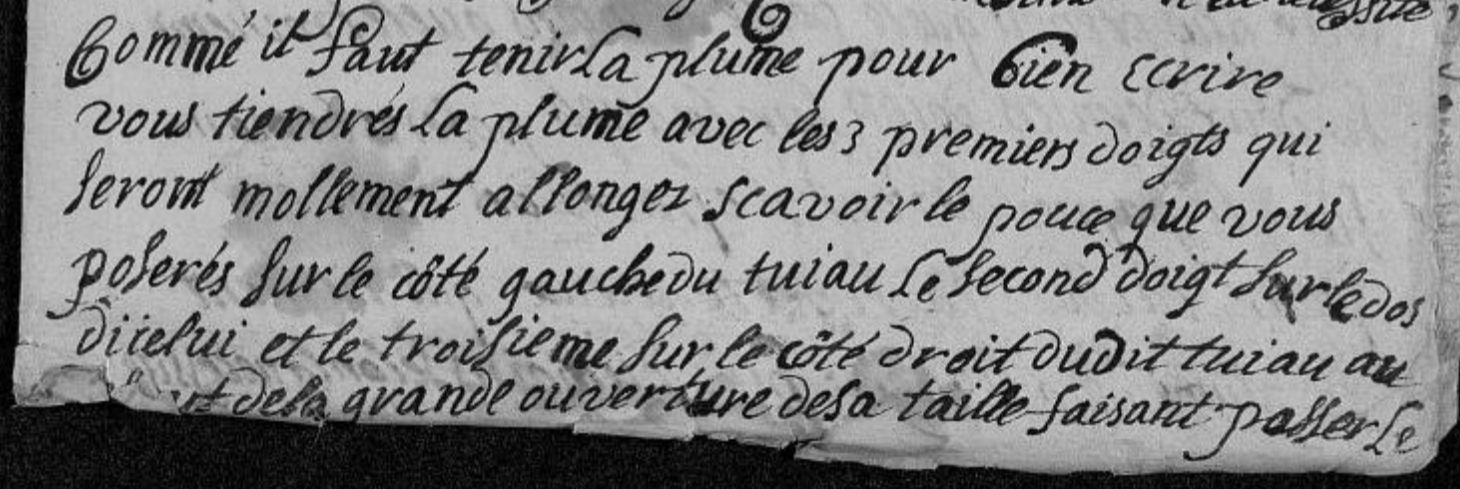 Commé il faut tenir la plume pour bien ecrire
vous tiendrés la plume avec les 3 premiers doigts qui
seront mollement allongez scavoir le pouce que vous
poserés sur le côté gauche du tuiau le second doigt sur le dos
d'icelui et le troisieme sur le côté droit dudit tuiau au
de la grande ouverture de sa taille faisant passer le